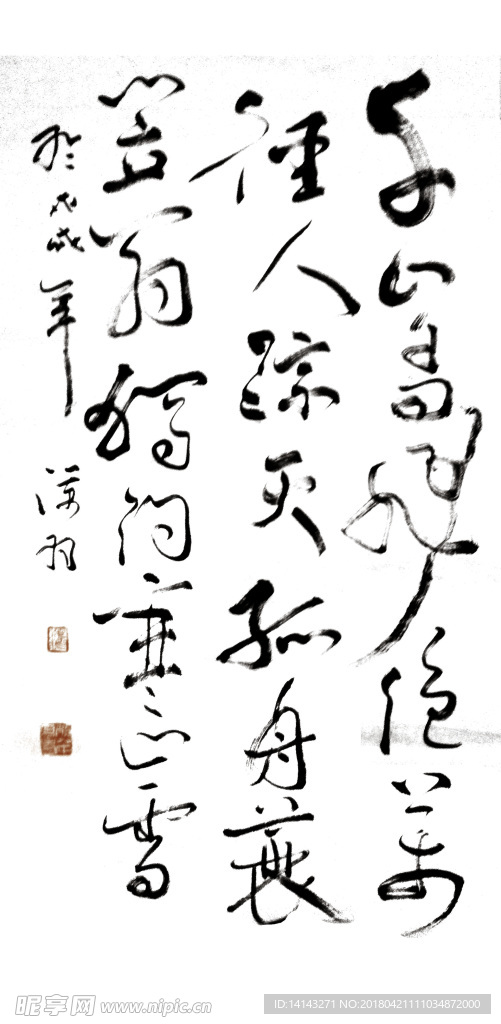 千山鸟飞绝万
径人踪灭孤舟蓑
笠翁独钓寒江雪
戊戌年
昵享网 www.nipic.cn
ID:14143271 NO:20180421111034872000